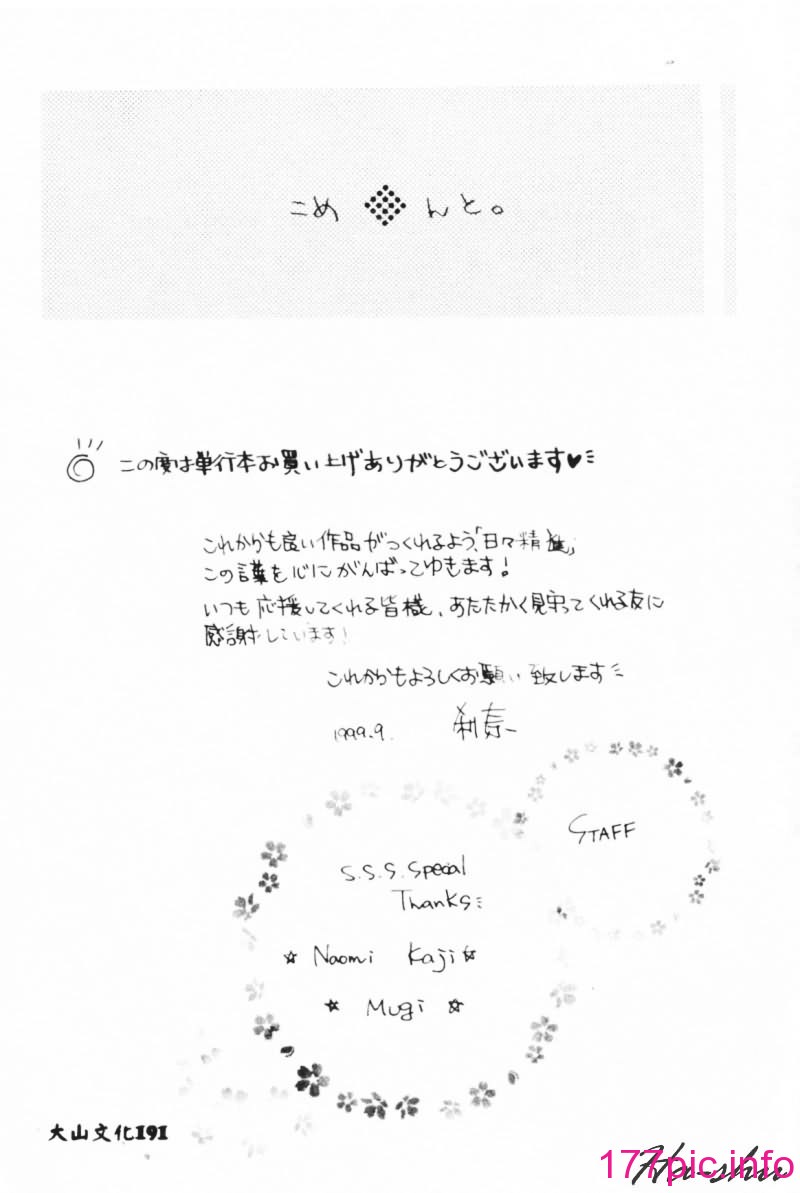 こめんと。
この度は単行本お買い上げありがとうございます♥
これからも良い作品がつくれるよう、「日々精進」
この言葉を心にがんばってゆきます!
いつも応援してくれる皆様と、あたたかく見守ってくれる友に
感謝しています!
これからもよろしくお願い致します
1999.9.
STAFF
S.S.S. Special
Thanks
☆ Naomi Kaji ☆
☆ Mugi ☆
大山文化191
177pic.info